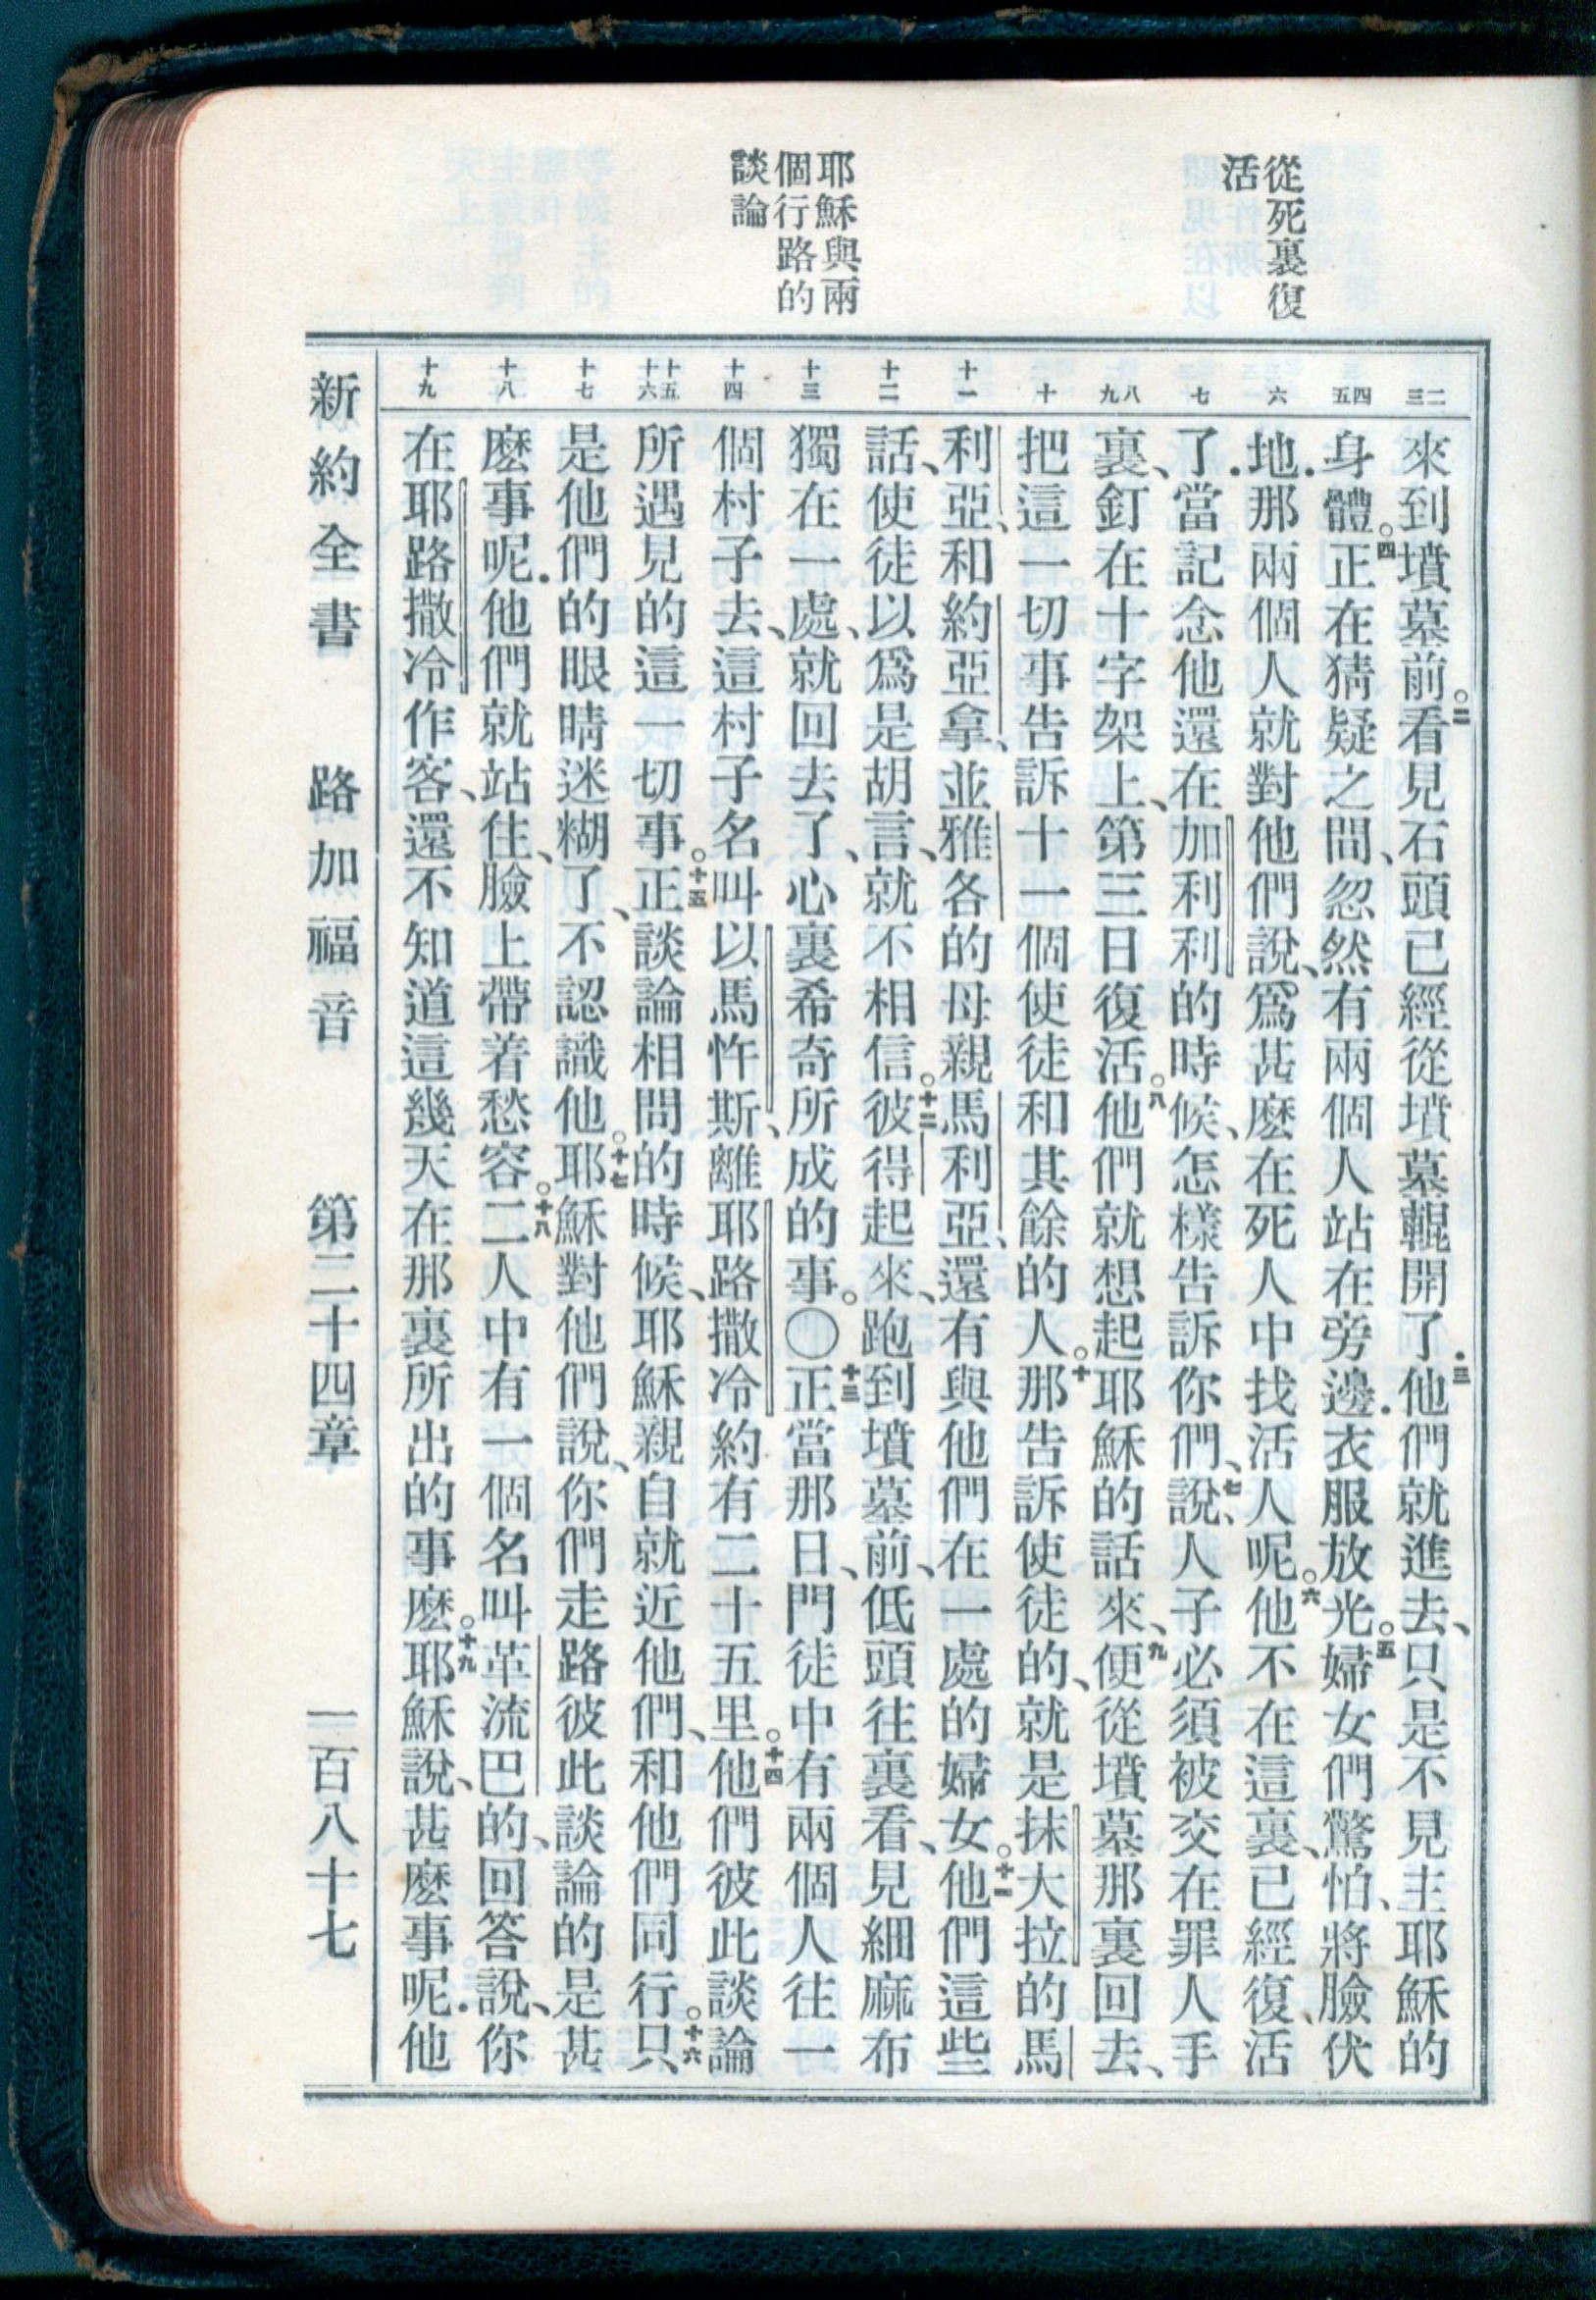 從死裏復
活
耶穌與兩
個行路的
談論
二
三
四
五
六
七
八
九
十
十一
十二
十三
十四
十五
十六
十七
十八
十九
來到墳墓前。二看見石頭已經從墳墓輥開了．三他們就進去、只是不見主耶穌的
身體。四正在猜疑之間、忽然有兩個人站在旁邊．衣服放光。五婦女們驚怕、將臉伏
地．那兩個人就對他們說、爲甚麽在死人中找活人呢。六他不在這裏、已經復活
了．當記念他還在加利利的時候、怎樣告訴你們、七說、人子必須被交在罪人手
裏、釘在十字架上、第三日復活。八他們就想起耶穌的話來、九便從墳墓那裏回去、
把這一切事告訴十一個使徒和其餘的人。十那告訴使徒的、就是抹大拉的馬
利亞、和約亞拿、並雅各的母親馬利亞、還有與他們在一處的婦女。十一他們這些
話、使徒以爲是胡言、就不相信。十二彼得起來、跑到墳墓前、低頭往裏看、見細麻布
獨在一處、就回去了、心裏希奇所成的事。〇十三正當那日、門徒中有兩個人往一
個村子去、這村子名叫以馬忤斯、離耶路撒冷約有二十五里。十四他們彼此談論
所遇見的這一切事。十五正談論相問的時候、耶穌親自就近他們、和他們同行。十六只
是他們的眼睛迷糊了、不認識他。十七耶穌對他們說、你們走路彼此談論的是甚
麽事呢．他們就站住、臉上帶着愁容。十八二人中有一個名叫革流巴的、回答說、你
在耶路撒冷作客、還不知道這幾天在那裏所出的事麽。十九耶穌說、甚麽事呢．他
新約全書 路加福音 第二十四章 一百八十七